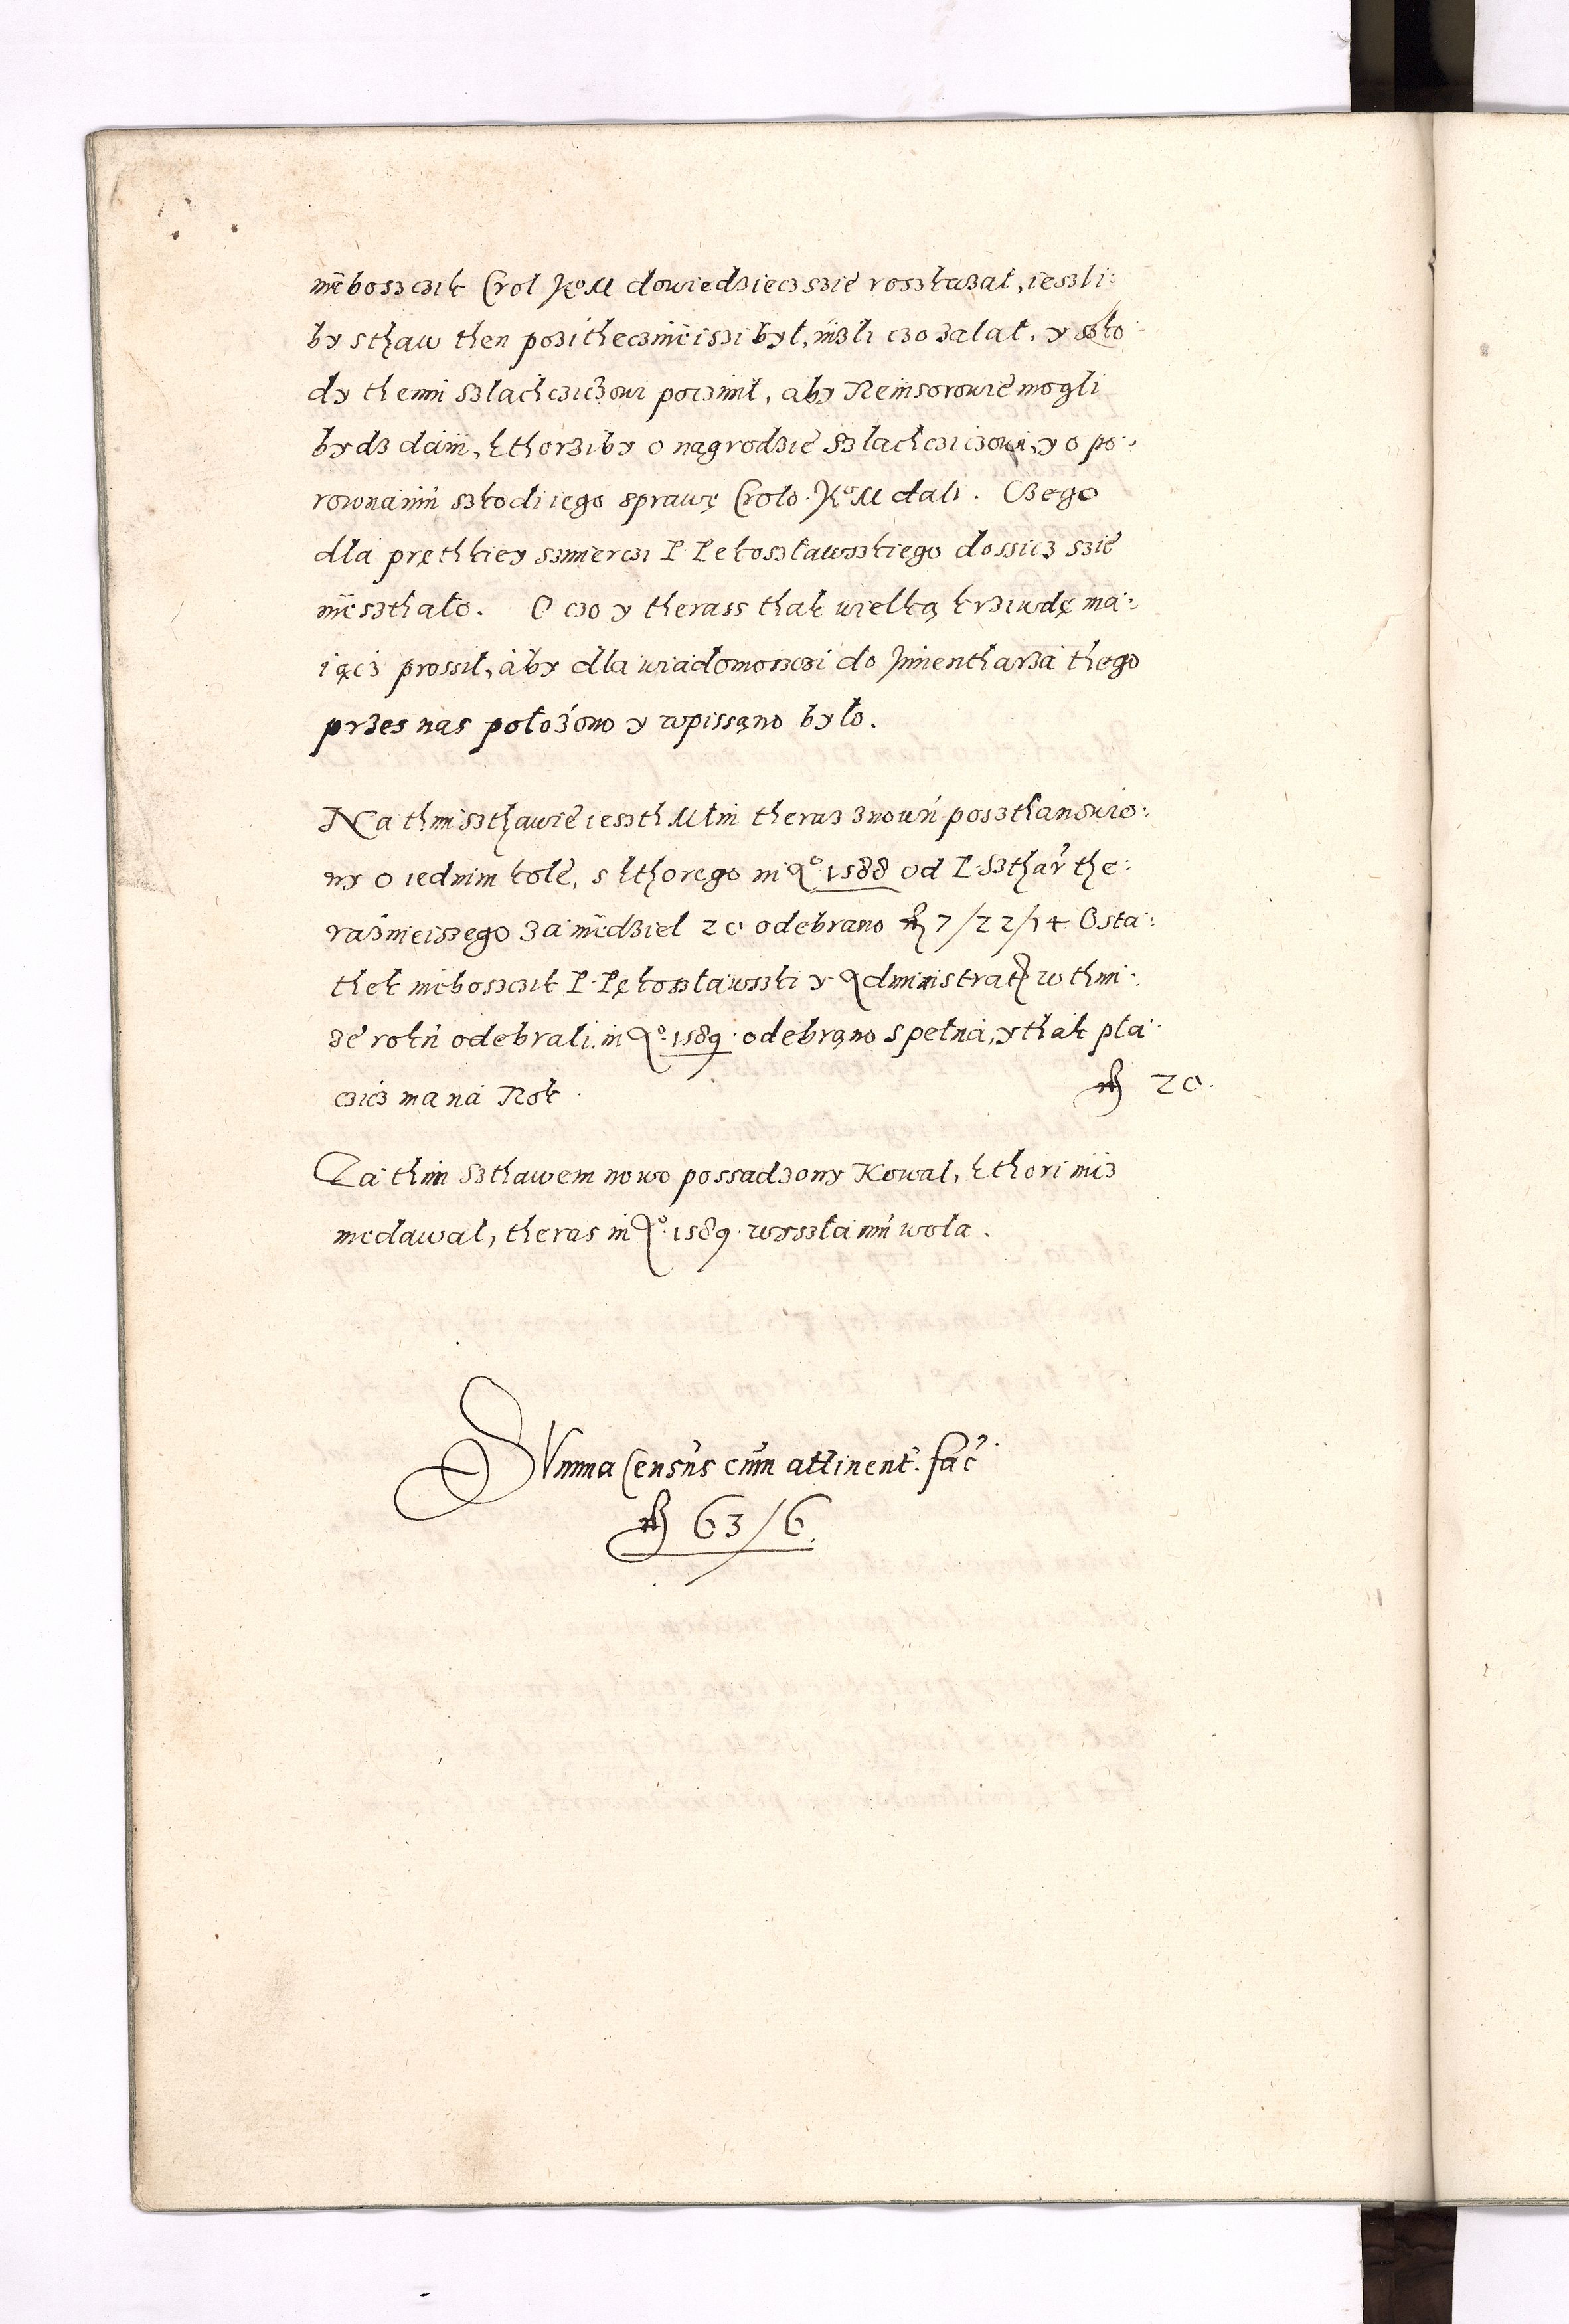 nieboszczik Crol Je⁰ M dowiedziecz szie roszkazal, ieszli:
by sthaw then pozithecznieiszi był, niżli czo zalał, y szko
dy themu szlachcziczowi poczinił, aby Reuisorowie mogli
bydz dani, kthorziby o nagrodzie szlachcziczowi, y o po:
rownaniu szkodi iego sprawę Crolo. Je⁰ M dali. Czego
dla pręthkiey szmierczi P. Pękoszlawszkiego dossicz szie
nieszthało. O czo y therass thak wielką krziwdę ma:
iącz prossil, aby dla wiadomoszczi do Inuentharza thego
przes nas położono y wpissano było.
Na thim szthawie ieszth Młin theraz znowu poszthanowio:
ny o iednim kole, s kthorego in A⁰. 1588 od P. Szthar the:
raźnieiszego za niedziel 20 odebrano fl 7/22/14 Osta:
thek nieboszczik P. Pękoszlawszki y Administrat. w thim:
że roku odebrali. in A⁰. 1589. odebrano spełna, y thak pła
czicz ma na Rok. fl 20.
Za thim szthawem nowo possadzony Kowal, kthori nicz
niedawal, theras in A⁰. 1589. wyszła mu wola.
Summa Census cum attinent. fac
fl 63/6.